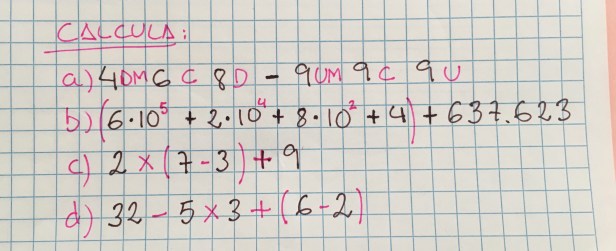 CALCULA:
a) 4DM 6C 8D - 9UM 9C 9U
b) (6·10⁵ + 2·10⁴ + 8·10² + 4) + 637.623
c) 2 x (7-3) + 9
d) 32 - 5 x 3 + (6-2)